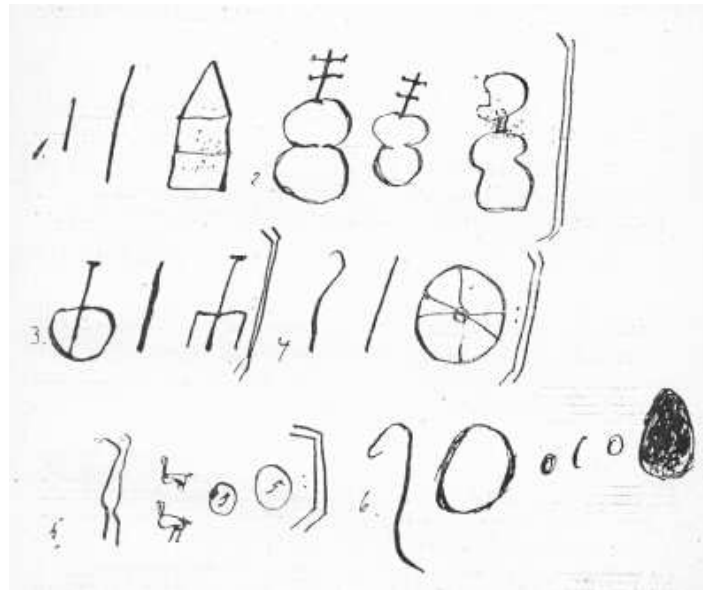 1. 2.
3. 4
5. 5 6.